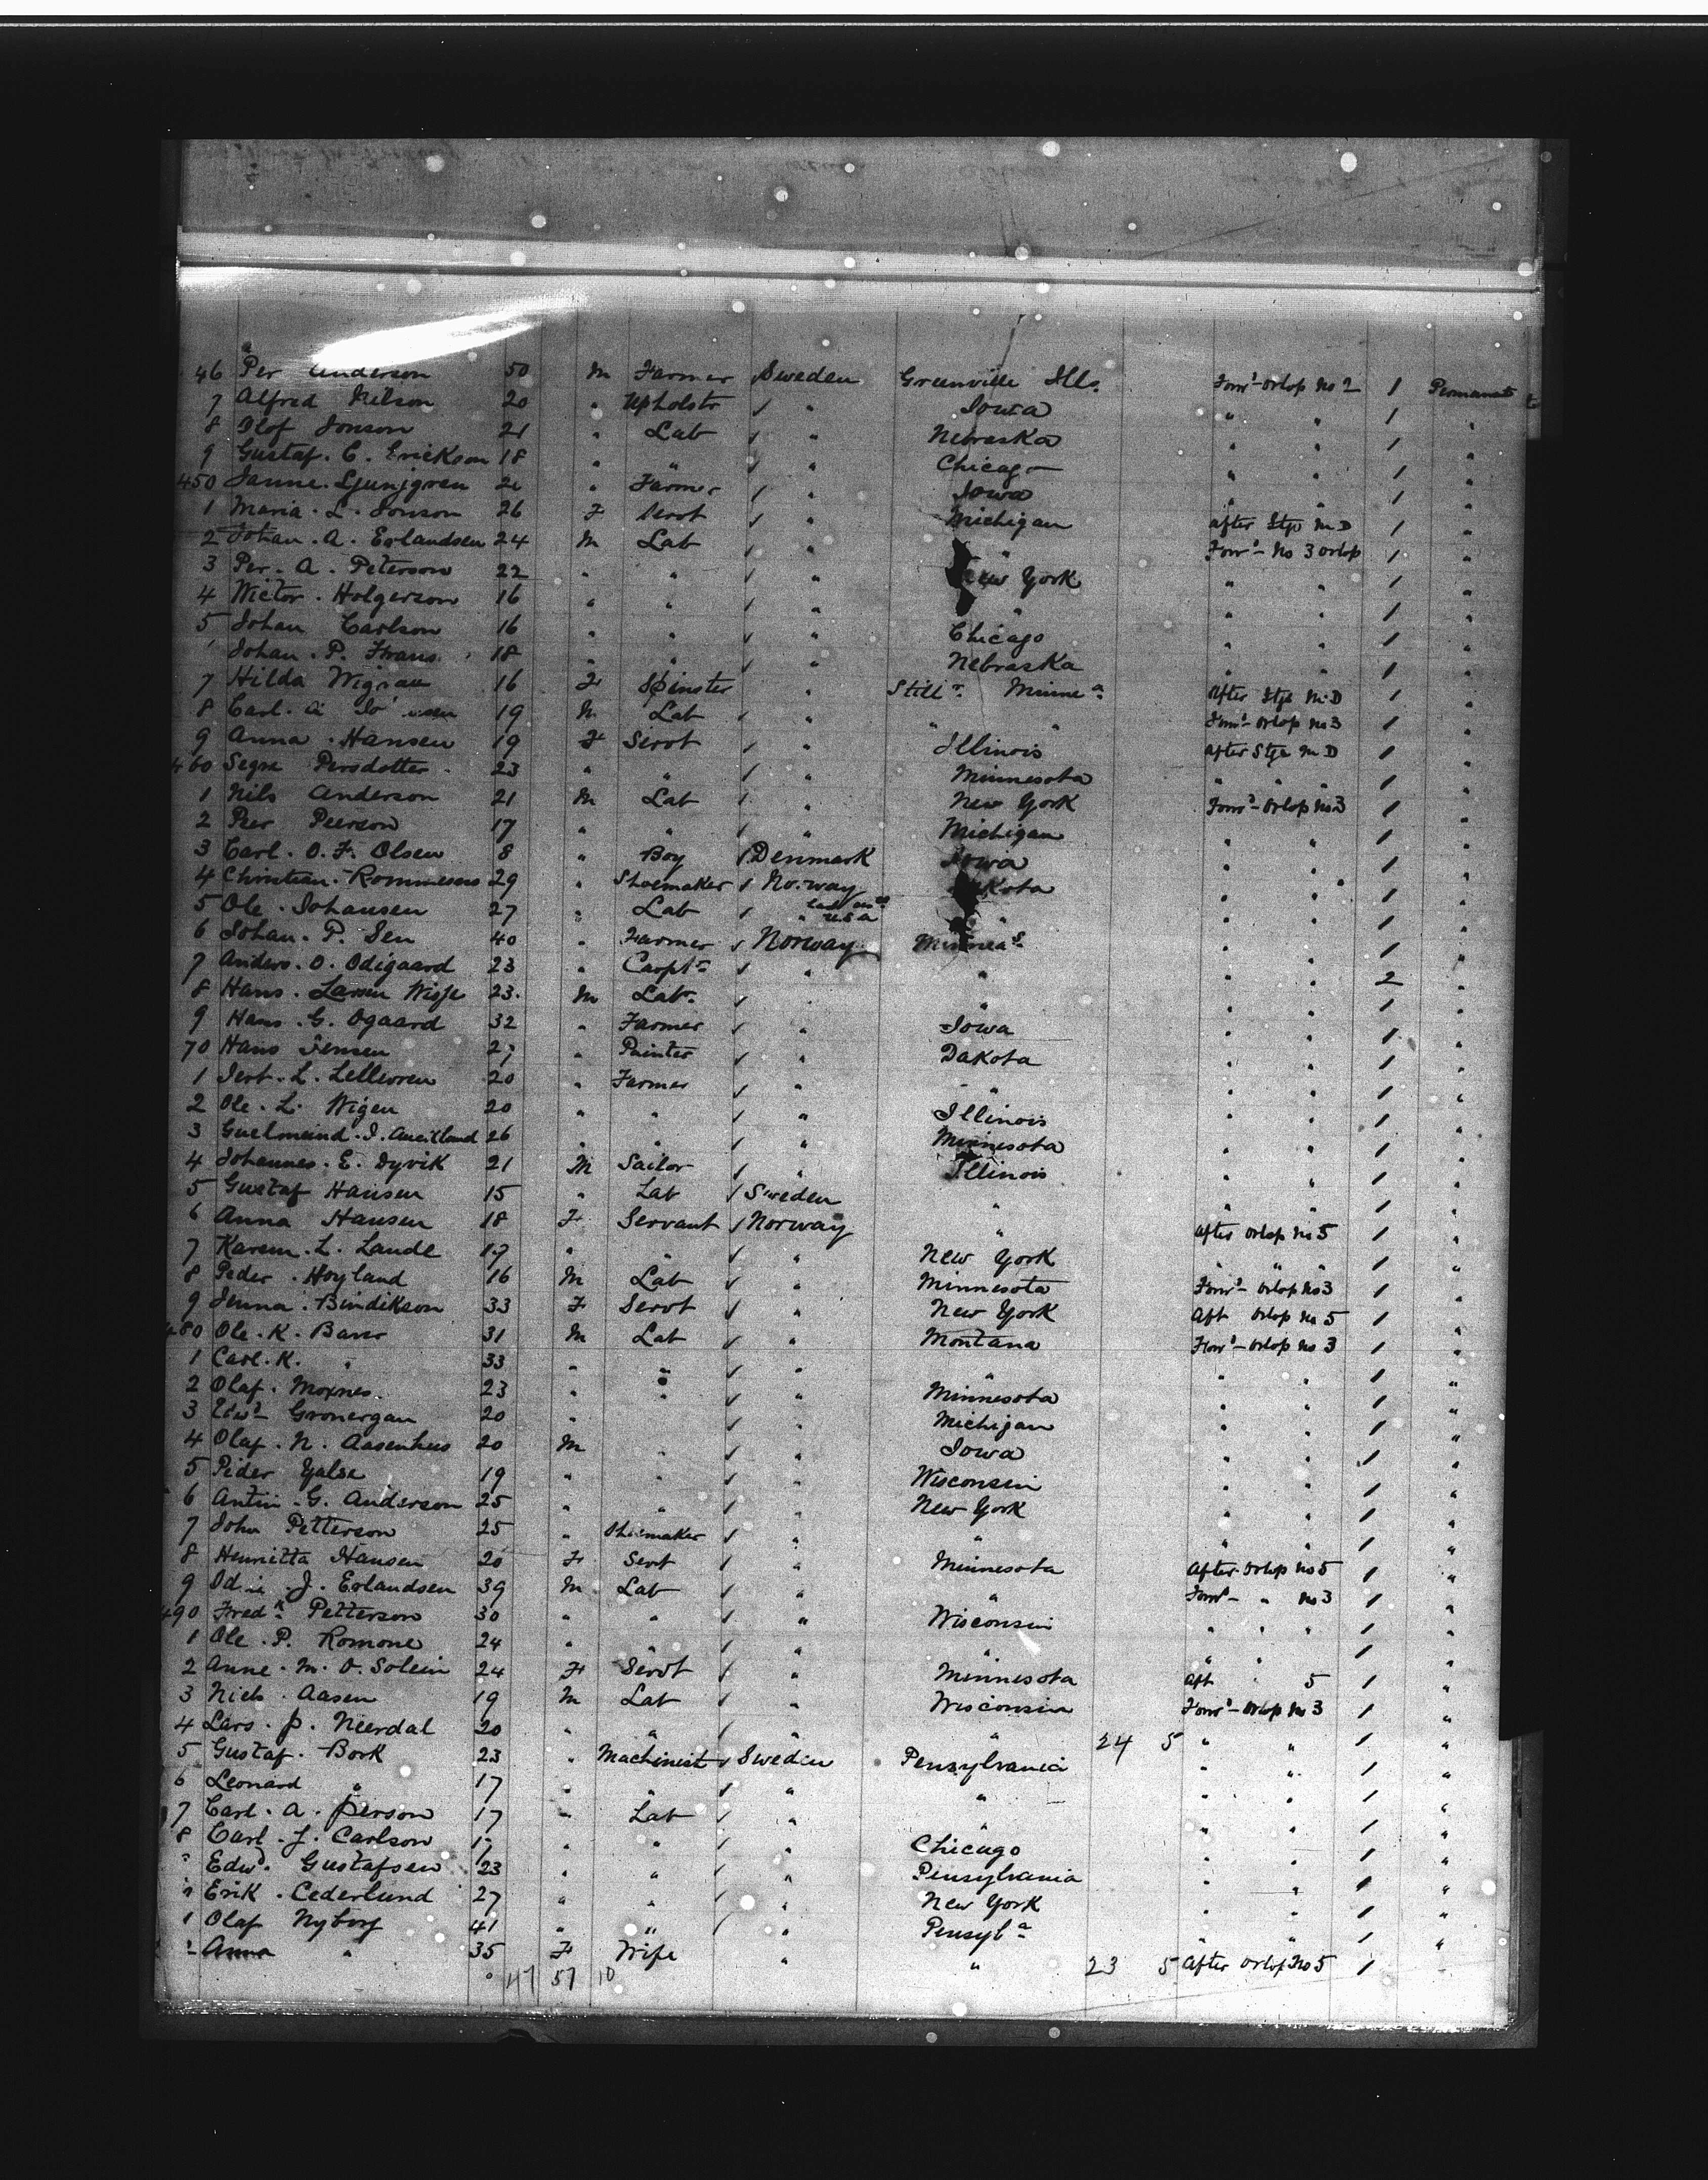 46 Per Anderson 50 M Farmer Sweden Greenville Ills. Forr'd Orlop No 2 1 Permanent
7 Alfred Nilson 20 " Upholstr " Iowa " " 1 "
8 Olof Jonson 21 " Lab " Nebraska " " 1 "
9 Gustaf. C. Erickson 18 " " " Chicago " " 1 "
450 Janne. Ljunjgren " Farmer " Iowa " " 1 "
1 Maria. L. Jonson 26 F Servt " Michigan After Stge M.D 1 "
2 Johan. A. Erlandsen 24 M Lab " " Forr'd No 3 Orlop 1 "
3 Per. A. Peterson 22 " " " New York " " 1 "
4 Wictor. Holgerson 16 " " " " " " 1 "
5 Johan Carlson 16 " " " Chicago " " 1 "
Johan. P. Frans. 18 " " " Nebraska " " 1 "
7 Hilda 16 F Spinster " Stillr Minnea After Stge M.D 1 "
8 Carl. A 19 M Lab " " " Forr'd Orlop No 3 1 "
9 Anna. Hansen 19 F Servt " Illinois After Stge M D 1 "
460 Segra Persdotter. 23 " " " Minnesota " " 1 "
1 Nils Anderson 21 M Lab " New York Forr'd Orlop No 3 1 "
2 Per Peerson 17 " " " Michigan " " 1 "
3 Carl. O. F. Olsen 8 " Boy Denmark Iowa " " 1 "
4 Christian. 29 " Shoemaker Norway kota " " 1 "
5 Ole. Johansen 27 " Lab " USA " " " 1 "
6 Johan. P. Sen 40 " Farmer Norway Minneas " " 1 "
7 Anders. O. Odigaard 23 " Carptr " " " " 2 "
8 Hans. Larsen 23. M Lab. " " " " 1 "
9 Hans. G. Ogaard 32 " Farmer " Iowa " " 1 "
70 Hans Jensen " Painter " Dakota " " 1 "
1 L. 20 " Farmer " " " " 1 "
2 Ole. L. Wigen 20 " " " Illinois " " 1 "
3 26 " " " Minnesota " " 1 "
4 Johannes. E. Dyvik 21 M Sailor " Illinois " " 1 "
5 Gustaf Hansen 15 " Lab Sweden " " " 1 "
6 Anna Hansen 18 F Servant Norway " After Orlop No 5 1 "
7 Karen. L. Lande 17 " " " New York " " " 1 "
8 Peder. Hoyland 16 M Lab " Minnesota Forr'd Orlop No 3 1 "
9 Jenna. Bindikson 33 F Servt " New York Aft Orlop No 5 1 "
480 Ole. K. 31 M Lab " Montana Forr'd Orlop No 3 1 "
1 Carl. K. " 33 " " " " " " 1 "
2 Olaf. Moxnes. 23 " " " Minnesota " " 1 "
3 Edwd Gronergan 20 " " Michigan " " 1 "
4 Olaf. N. Aasenhus 20 M " " Iowa " " 1 "
5 Peder 19 " " " Wisconsin " " 1 "
6 Antin. G. Anderson 25 " " " New York " " 1 "
7 John Petterson 25 " Shoemaker " " " " 1 "
8 Henrietta Hansen 20 F Servt " Minnesota After Orlop No 5 1 "
9 J. Erlandsen 39 M Lab " " Forr'd " No 3 1 "
490 Fredk Petterson 30 " " " Wisconsin " " " 1 "
1 Ole. P. Romone 24 " " " " " " 1 "
2 Anne. M. O. Solein 24 F Servt " Minnesota Aft " 5 1 "
3 Niels. Aasen 19 M Lab " Wisconsin Forr'd Orlop No 3 1 "
4 Lars. P. Neerdal 20 " " " " 24 5 " " 1 "
5 Gustaf. Bork 23 " Machinist Sweden Pensylvania " " 1 "
6 Leonard " 17 " " " " " " 1 "
7 Carl. A. Person 17 " Lab " " " " 1 "
8 Carl. J. Carlson " " " Chicago " " 1 "
Edwd. Gustafsen 23 " " " Pensylvania " " 1 "
Erik. Cederlund 27 " " " New York " " 1 "
1 Olaf Nyborg 41 " " " Pensyla " " 1 "
Anna " 35 F Wife " " 23 5 After Orlop No 5 1
47 57 10